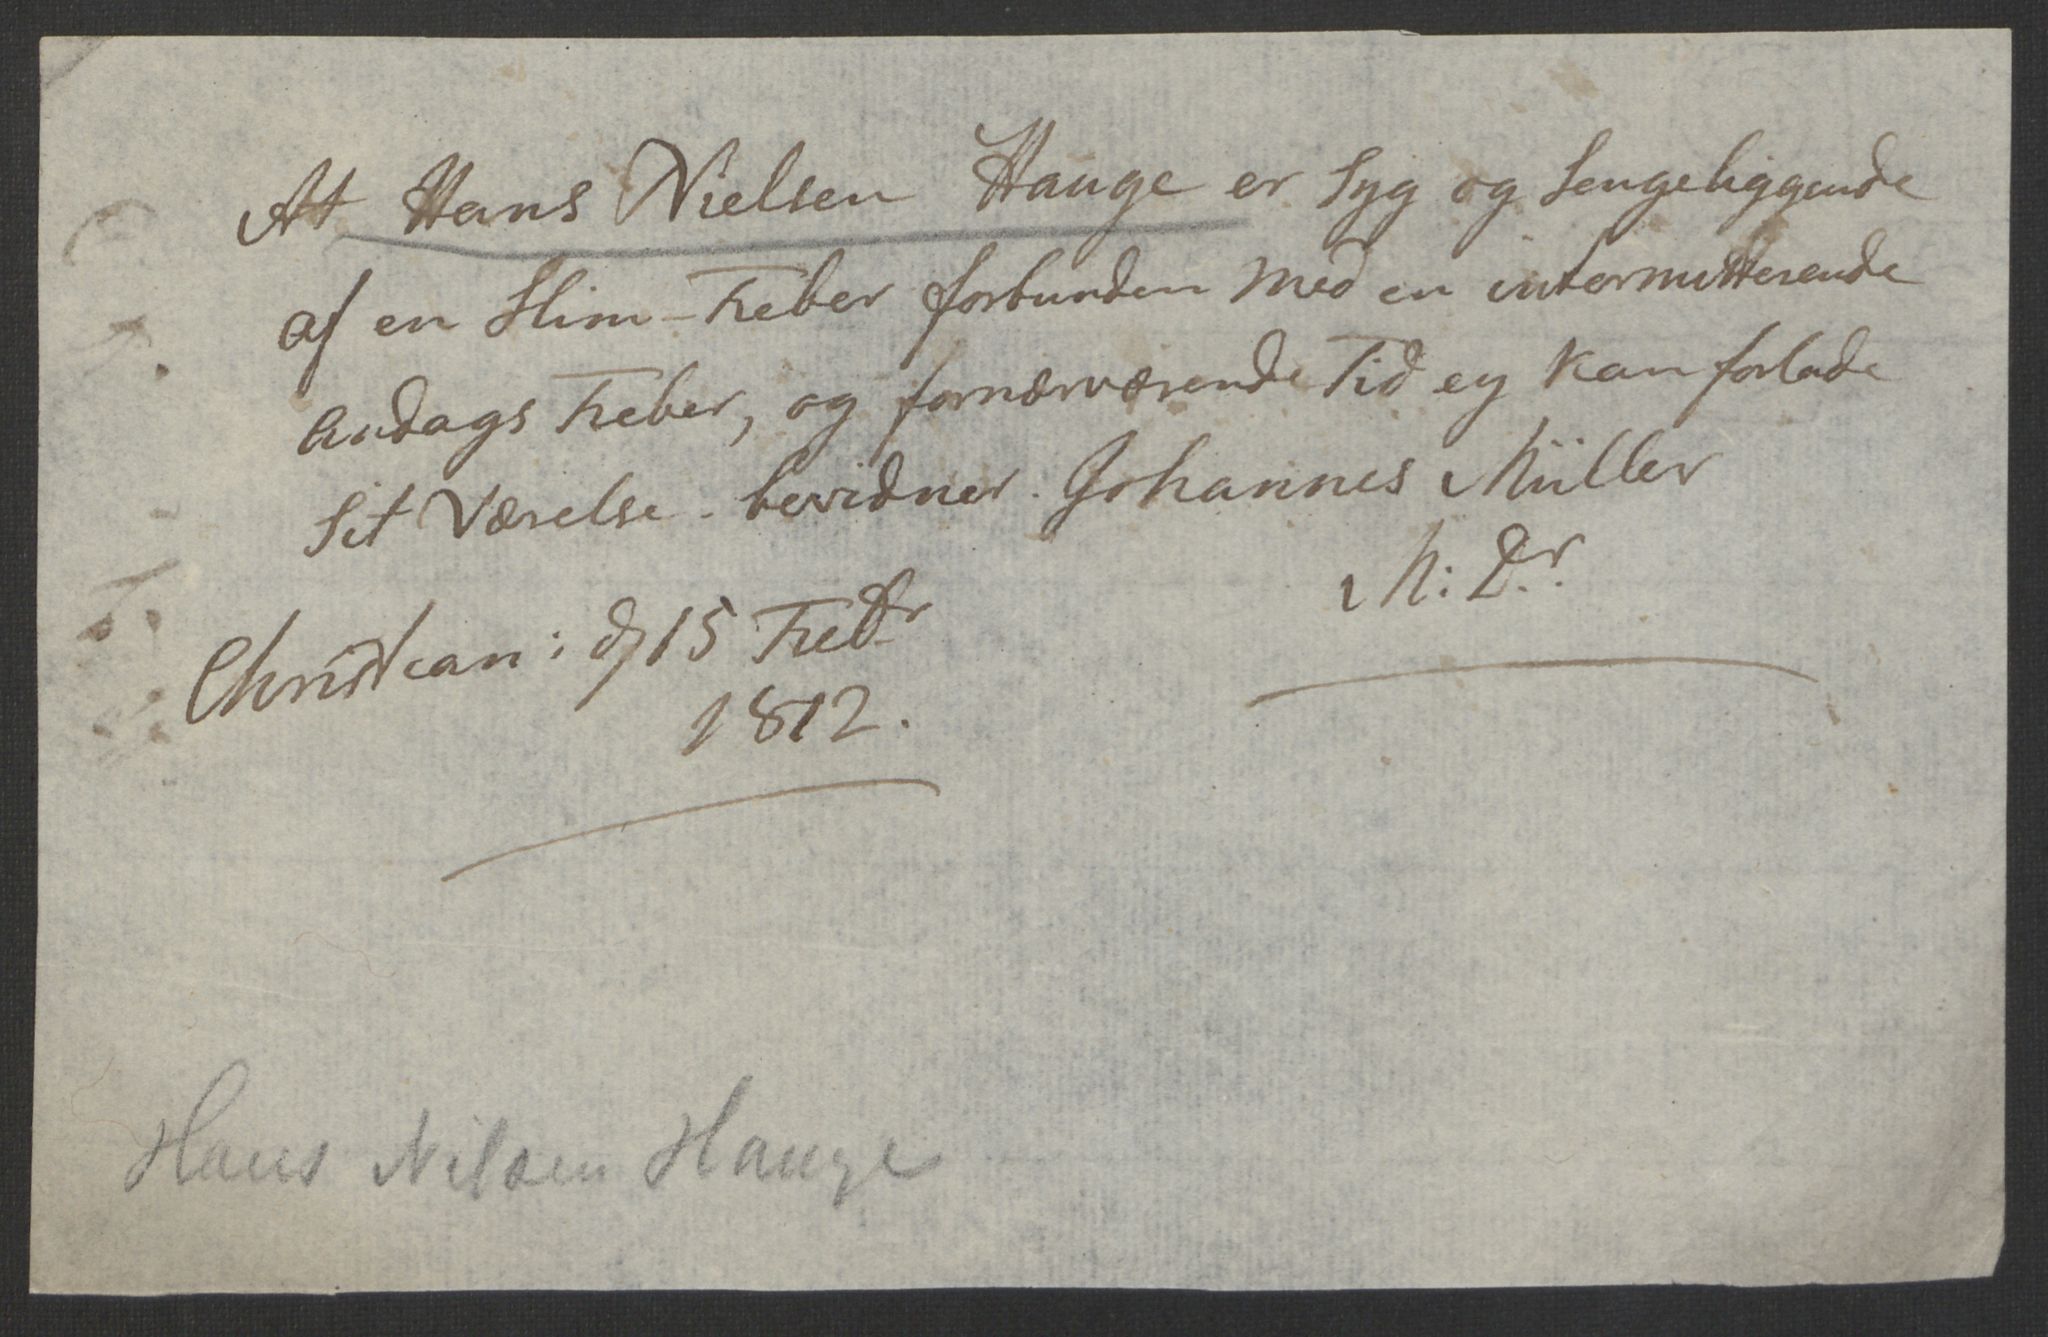 At Hans Nielsen Hauge er Syg og Sengeliggende
af en Slim-Feber forbunden med en intermitterende
Andags Feber, og fornærværende Tid ey kan forlade
Sit Værelse - bevidner. Johannes Müller
M: Dr.
Christian: d 15 Febr
1812.
Hans Nilsen Hauge